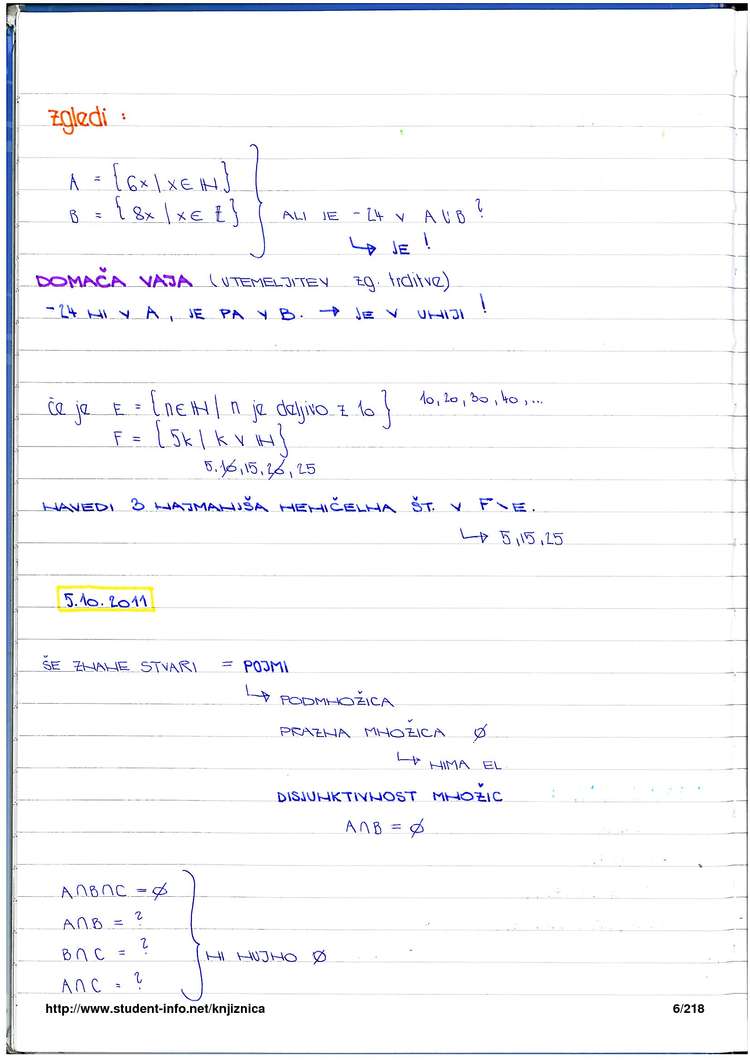 zgledi :
A = {6x | x ∈ ℕ}
B = {8x | x ∈ ℤ} ALI JE -24 V A ∪ B ?
↳ JE !
DOMAČA VAJA (UTEMELJITEV zg. trditve)
-24 NI V A, JE PA V B. → JE V UNIJI !
če je E = {n ∈ ℕ | n je deljivo z 10} 10, 20, 30, 40, ...
F = {5k | k V ℕ}
5, 10, 15, 20, 25
NAVEDI 3 NAJMANJŠA NENIČELNA ŠT. V F \ E.
↳ 5, 15, 25
5.10.2011
ŠE ZNANE STVARI = POJMI
↳ PODMNOŽICA
PRAZNA MNOŽICA ∅
↳ NIMA EL
DISJUNKTIVNOST MNOŽIC
A ∩ B = ∅
A ∩ B ∩ C = ∅
A ∩ B = ?
B ∩ C = ? NI NUJNO ∅
A ∩ C = ?
http://www.student-info.net/knjiznica 6/218